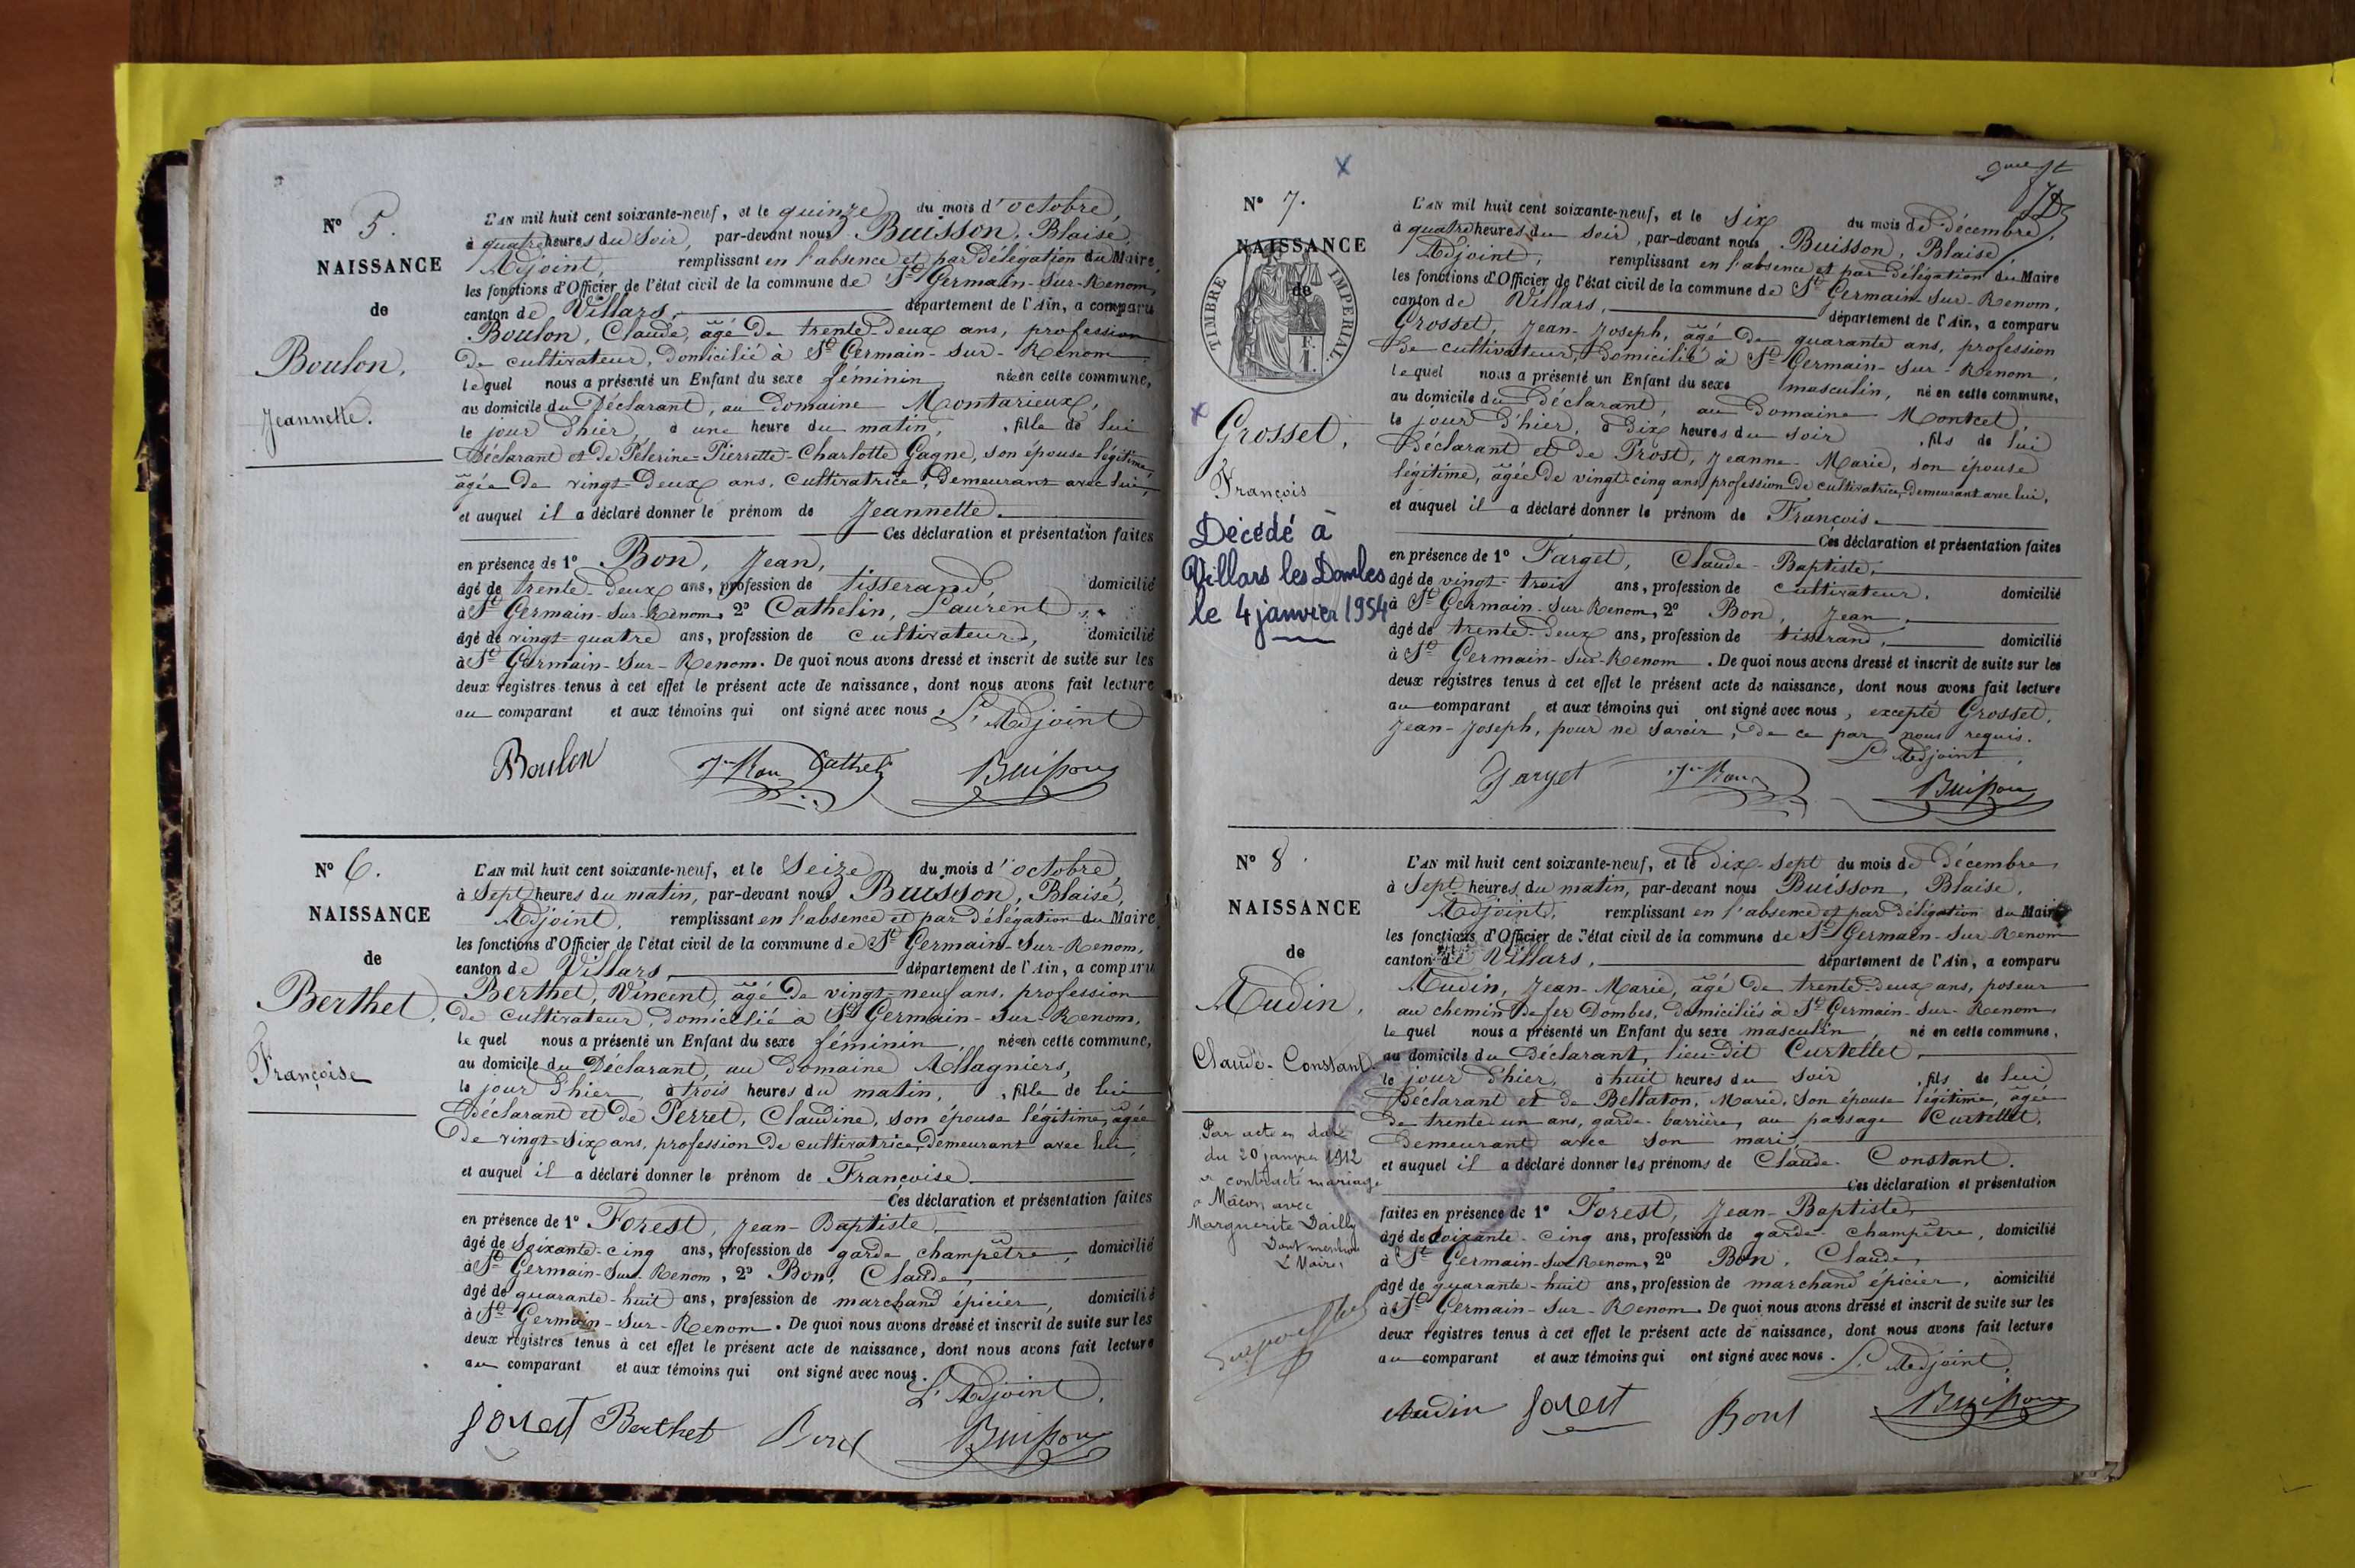 N° 5.
NAISSANCE
de
Boulon,
Jeannette.
L'AN mil huit cent soixante-neuf, et le quinze du mois d'octobre,
à quatre heures du soir, par-devant nous Buisson, Blaise,
Adjoint, remplissant en l'absence et par délégation du Maire,
les fonctions d'Officier de l'état civil de la commune de St Germain-sur-Renom,
canton de Villars, département de l'Ain, a comparu
Boulon, Claude, âgé de trente-deux ans, profession
de cultivateur, domicilié à St Germain-sur-Renom
lequel nous a présenté un Enfant du sexe féminin, née en cette commune,
au domicile du Déclarant, au domaine Montarieux,
le jour d'hier, à une heure du matin, fille de lui
Déclarant et de Pélerine-Pierrette-Charlotte Gagne, son épouse légitime,
âgée de vingt-deux ans, cultivatrice, demeurant avec lui,
et auquel il a déclaré donner le prénom de Jeannette.
Ces déclaration et présentation faites
en présence de 1° Bon, Jean,
âgé de trente-deux ans, profession de tisserand, domicilié
à St Germain-sur-Renom, 2° Cathelin, Laurent
âgé de vingt-quatre ans, profession de cultivateur, domicilié
à St Germain-sur-Renom. De quoi nous avons dressé et inscrit de suite sur les
deux registres tenus à cet effet le présent acte de naissance, dont nous avons fait lecture
au comparant et aux témoins qui ont signé avec nous. L'Adjoint
Boulon Jn Bon Cathelin Buisson
N° 6.
NAISSANCE
de
Berthet,
Françoise
L'AN mil huit cent soixante-neuf, et le seize du mois d'octobre,
à sept heures du matin, par-devant nous Buisson, Blaise,
Adjoint, remplissant en l'absence et par délégation du Maire
les fonctions d'Officier de l'état civil de la commune de St Germain-sur-Renom,
canton de Villars, département de l'Ain, a comparu
Berthet, Vincent, âgé de vingt-neuf ans, profession
de cultivateur, domicilié à St Germain-sur-Renom,
lequel nous a présenté un Enfant du sexe féminin, née en cette commune,
au domicile du Déclarant, au domaine Allagniers,
le jour d'hier à trois heures du matin, fille de lui
Déclarant et de Perret, Claudine, son épouse légitime, âgée
de vingt-six ans, profession de cultivatrice, demeurant avec lui,
et auquel il a déclaré donner le prénom de Françoise.
Ces déclaration et présentation faites
en présence de 1° Forest, Jean-Baptiste,
âgé de soixante-cinq ans, profession de garde champêtre, domicilié
à St Germain-sur-Renom, 2° Bon, Claude,
âgé de quarante-huit ans, profession de marchand épicier, domicilié
à St Germain-sur-Renom. De quoi nous avons dressé et inscrit de suite sur les
deux registres tenus à cet effet le présent acte de naissance, dont nous avons fait lecture
au comparant et aux témoins qui ont signé avec nous.
L'Adjoint,
Forest Berthet Bon Buisson
N° 7.
NAISSANCE
de
TIMBRE IMPERIAL
Grosset,
François
Décédé à
Villars les Dombes
le 4 janvier 1954
L'AN mil huit cent soixante-neuf, et le six du mois de décembre,
à quatre heures du soir, par-devant nous Buisson, Blaise
Adjoint, remplissant en l'absence et par délégation du Maire
les fonctions d'Officier de l'état civil de la commune de St Germain-sur-Renom,
canton de Villars, département de l'Ain, a comparu
Grosset, Jean-Joseph, âgé de quarante ans, profession
de cultivateur, domicilié à St Germain-sur-Renom,
lequel nous a présenté un Enfant du sexe masculin, né en cette commune,
au domicile du Déclarant, au domaine Montcel,
le jour d'hier, à dix heures du soir, fils de lui
Déclarant et de Prost, Jeanne-Marie, son épouse
légitime, âgée de vingt-cinq ans, profession de cultivatrice, demeurant avec lui,
et auquel il a déclaré donner le prénom de François.
Ces déclaration et présentation faites
en présence de 1° Farget, Claude-Baptiste,
âgé de vingt-trois ans, profession de cultivateur, domicilié
à St Germain-sur-Renom, 2° Bon, Jean,
âgé de trente-deux ans, profession de tisserand, domicilié
à St Germain-sur-Renom. De quoi nous avons dressé et inscrit de suite sur les
deux registres tenus à cet effet le présent acte de naissance, dont nous avons fait lecture
au comparant et aux témoins qui ont signé avec nous, excepté Grosset,
Jean-Joseph, pour ne savoir, de ce par nous requis.
L'Adjoint,
Farget Jn Bon Buisson
N° 8.
NAISSANCE
de
Audin,
Claude-Constant.
Par acte en date
du 20 janvier 1912
a contracté mariage
à Mâcon avec
Marguerite Dailly
Dont mention
Le Maire,
L'AN mil huit cent soixante-neuf, et le dix-sept du mois de décembre,
à sept heures du matin, par-devant nous Buisson, Blaise,
Adjoint, remplissant en l'absence et par délégation du Maire
les fonctions d'Officier de l'état civil de la commune de St Germain-sur-Renom
canton de Villars, département de l'Ain, a comparu
Audin, Jean-Marie, âgé de trente-deux ans, poseur
au chemin de fer Dombes, domiciliés à St Germain-sur-Renom
lequel nous a présenté un Enfant du sexe masculin, né en cette commune,
au domicile du Déclarant, lieu-dit Curtellet,
le jour d'hier, à huit heures du soir, fils de lui
Déclarant et de Bellaton, Marie, son épouse légitime, âgée
de trente-un ans, garde-barrière, au passage Curtellet,
demeurant avec son mari,
et auquel il a déclaré donner les prénoms de Claude-Constant.
Ces déclaration et présentation
faites en présence de 1° Forest, Jean-Baptiste,
âgé de soixante-cinq ans, profession de garde-champêtre, domicilié
à St Germain-sur-Renom, 2° Bon, Claude,
âgé de quarante-huit ans, profession de marchand épicier, domicilié
à St Germain-sur-Renom. De quoi nous avons dressé et inscrit de suite sur les
deux registres tenus à cet effet le présent acte de naissance, dont nous avons fait lecture
au comparant et aux témoins qui ont signé avec nous. L'Adjoint,
Audin Forest Bon Buisson